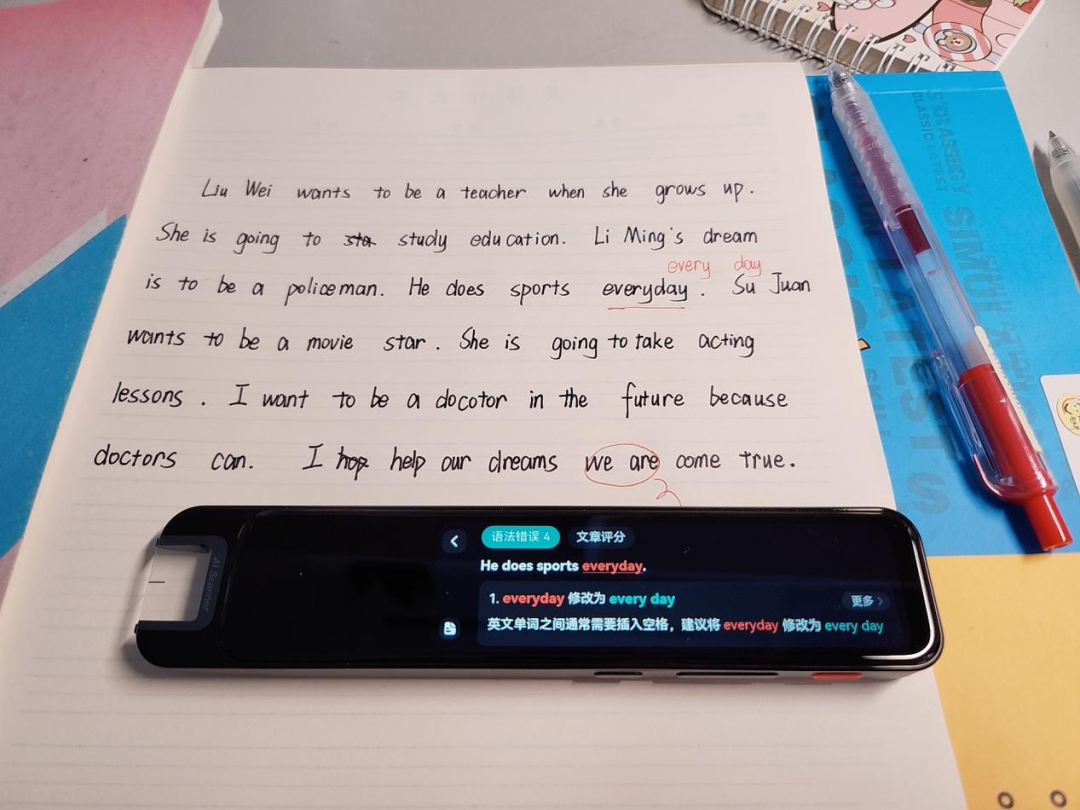 Liu Wei wants to be a teacher when she grows up.
She is going to sta study education. Li Ming's dream
every day
is to be a policeman. He does sports everyday. Su Juan
wants to be a movie star. She is going to take acting
lessons. I want to be a docotor in the future because
doctors can. I hop help our dreams we are come true.
语法错误 4 文章评分
He does sports everyday.
1. everyday 修改为 every day 更多
英文单词之间通常需要插入空格，建议将 everyday 修改为 every day
AI Scanner
CLASSIC LATEST